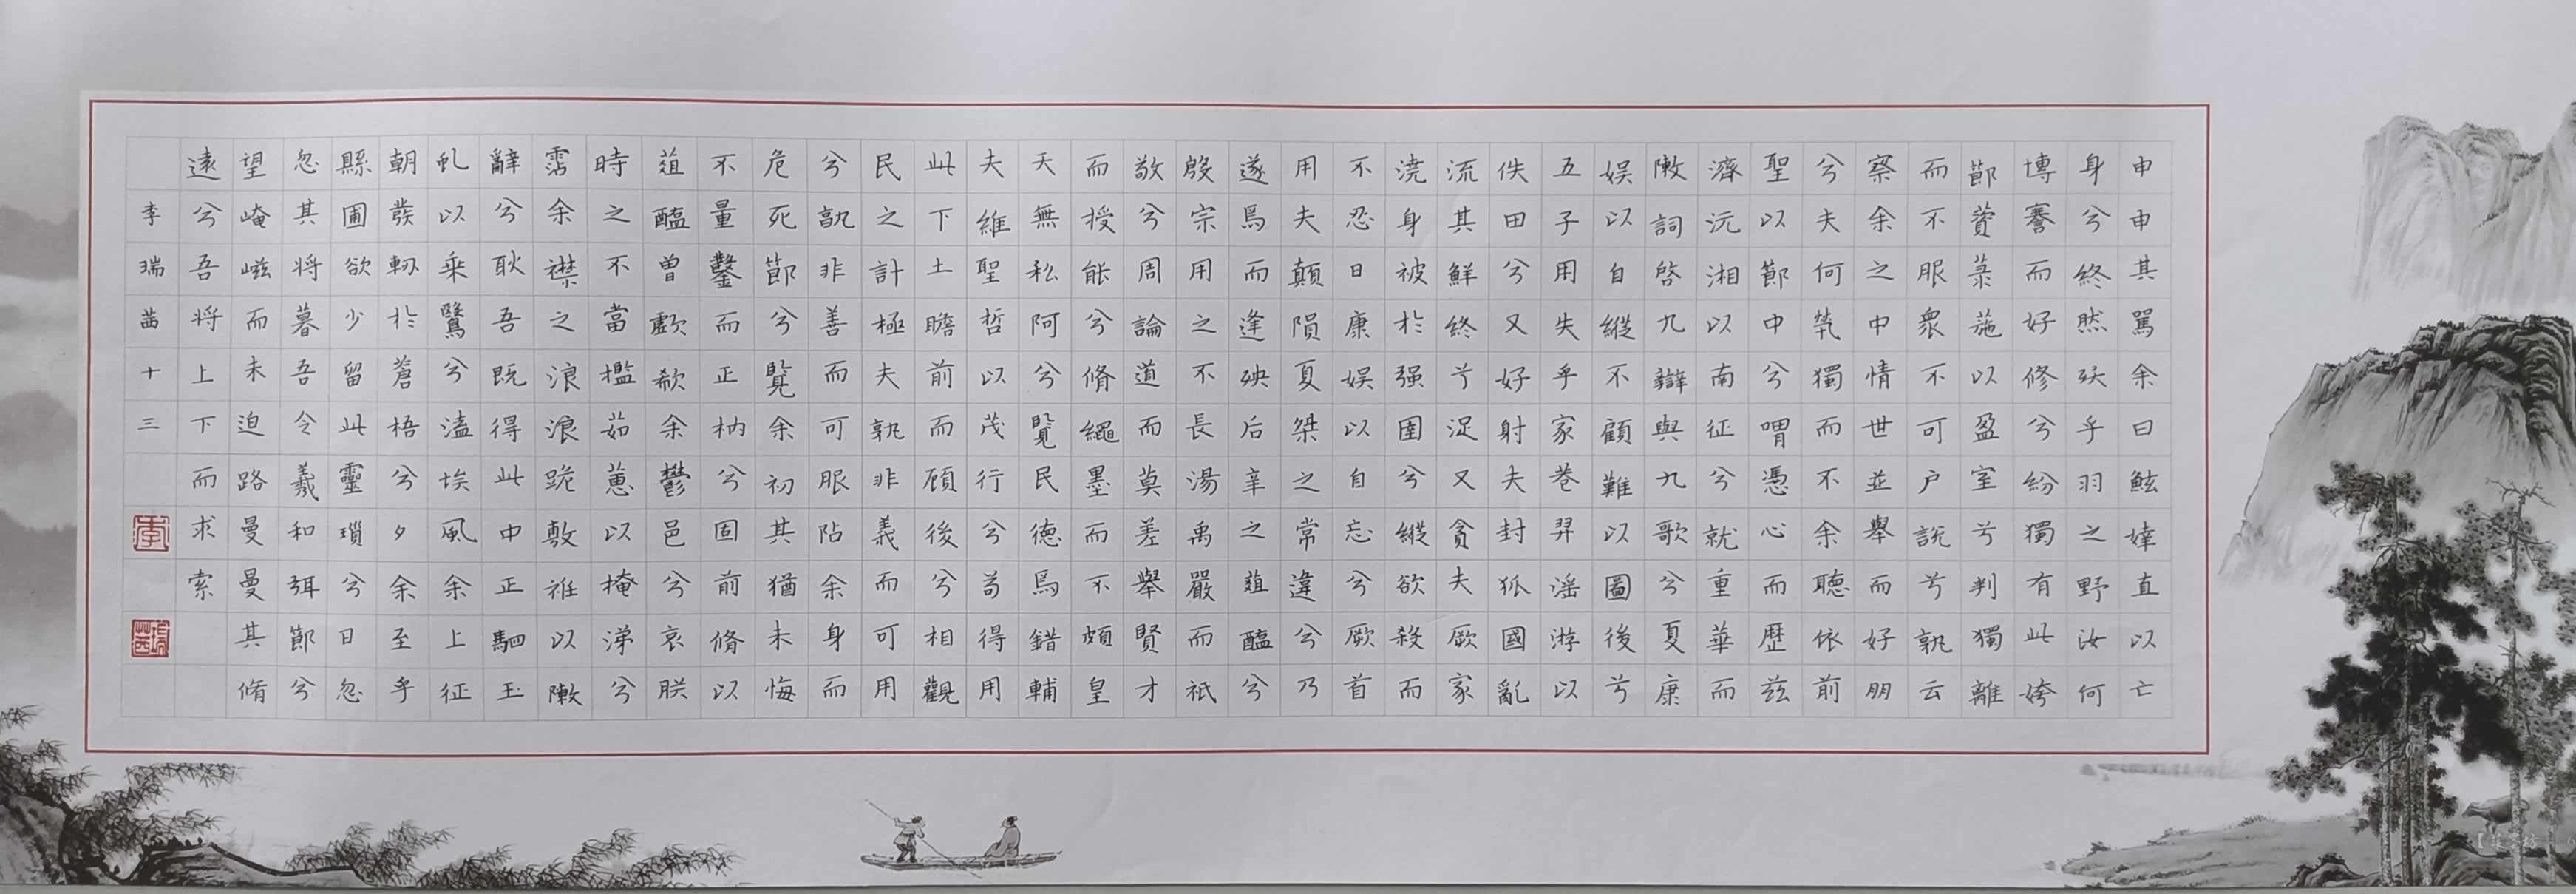 申申其罵余曰鮌婞直以亡
身兮終然殀乎羽之野汝何
博謇而好修兮紛獨有此姱
節薋菉葹以盈室兮判獨離
而不服衆不可户說兮孰云
察余之中情世並舉而好朋
兮夫何煢獨而不余聽依前
聖以節中兮喟憑心而歷茲
濟沅湘以南征兮就重華而
敶詞啓九辯與九歌兮夏康
娱以自縱不顧難以圖後兮
五子用失乎家巷羿淫游以
佚田兮又好射夫封狐國亂
流其鮮終兮浞又貪夫厥家
澆身被於强圉兮縱欲殺而
不忍日康娱以自忘兮厥首
用夫顛隕夏桀之常違兮乃
遂焉而逢殃后辛之菹醢兮
殷宗用之不長湯禹嚴而祇
敬兮周論道而莫差舉賢才
而授能兮脩繩墨而不頗皇
天無私阿兮覽民德焉錯輔
夫維聖哲以茂行兮苟得用
此下土瞻前而顧後兮相觀
民之計極夫孰非義而可用
兮孰非善而可服阽余身而
危死節兮覽余初其猶未悔
不量鑿而正枘兮固前脩以
菹醢曾歔欷余鬱邑兮哀朕
時之不當攬茹蕙以掩涕兮
霑余襟之浪浪跪敷衽以敶
辭兮耿吾既得此中正駟玉
虬以乘鷖兮溘埃風余上征
朝發軔於蒼梧兮夕余至乎
縣圃欲少留此靈瑣兮日忽
忽其將暮吾令羲和弭節兮
望崦嵫而未迫路曼曼其脩
遠兮吾將上下而求索
李瑞茜十三
李
瑞茜